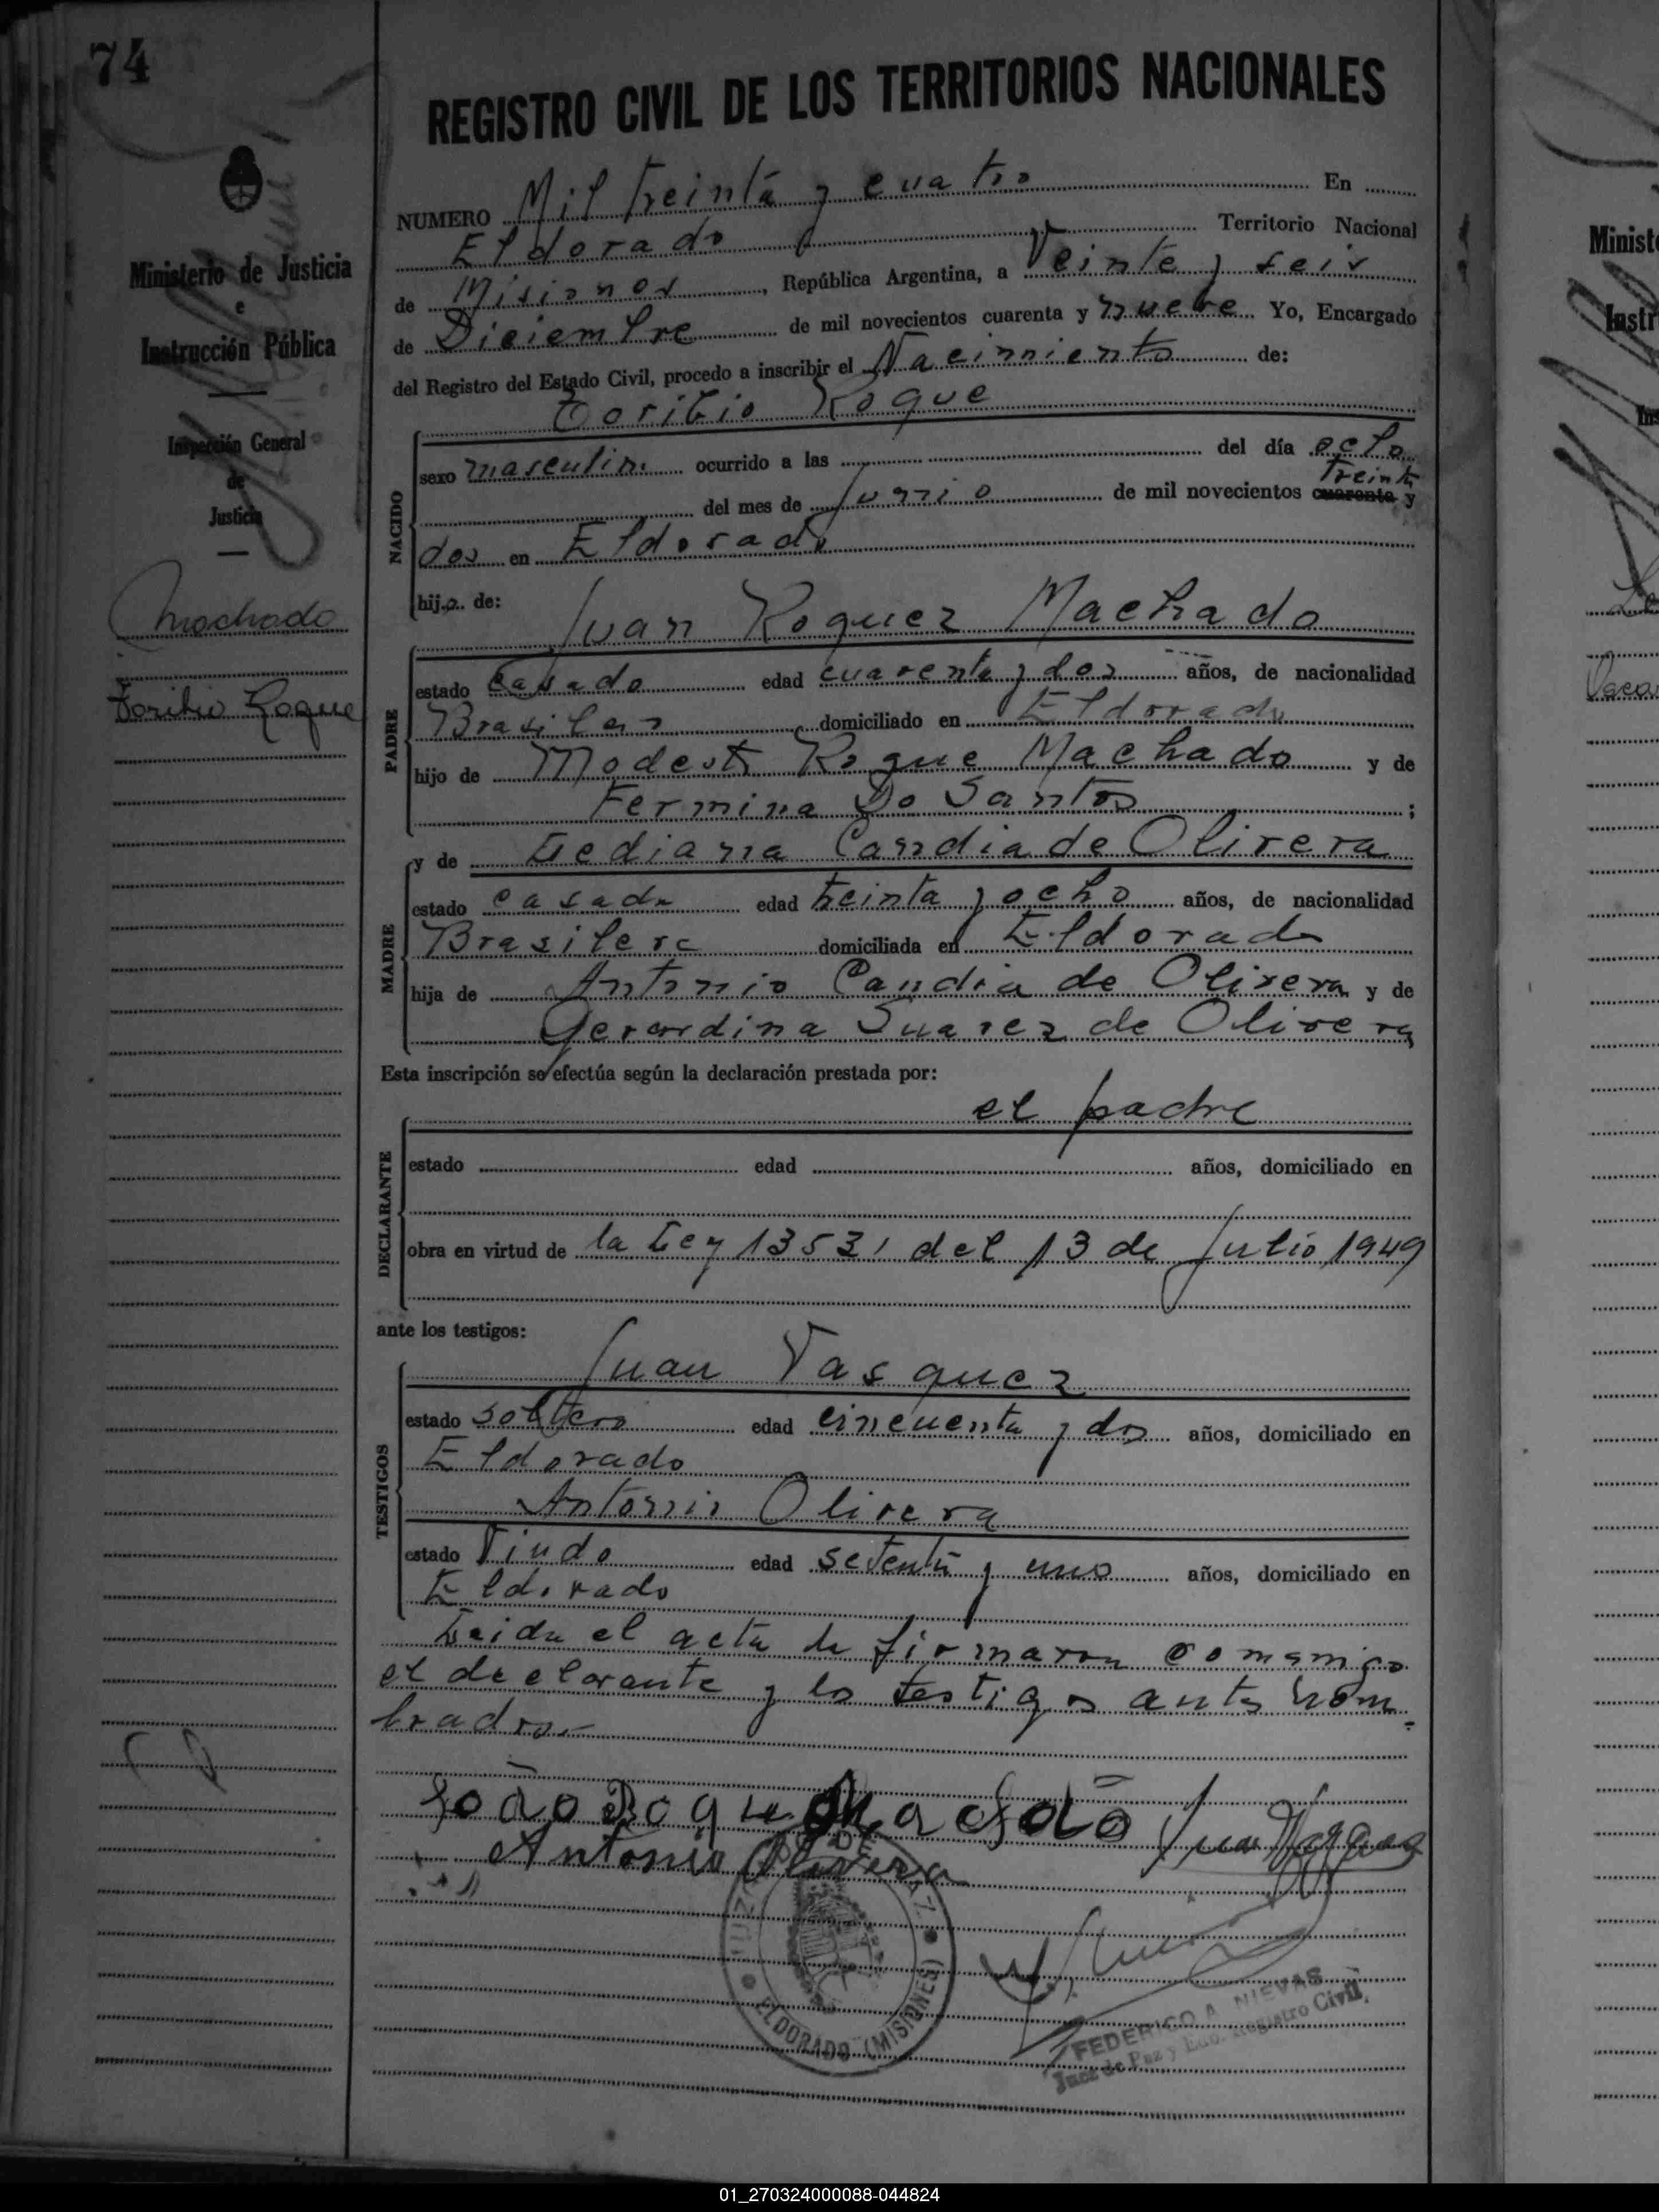 74
REGISTRO CIVIL DE LOS TERRITORIOS NACIONALES
Ministerio de Justicia
e
Instrucción Pública
Inspección General
de
Justicia
Machado
Toribio Roque
NUMERO Mil treinta y cuatro En
Eldorado Territorio Nacional
de Misiones, República Argentina, a Veinte y seis
de Diciembre de mil novecientos cuarenta y nueve Yo, Encargado
del Registro del Estado Civil, procedo a inscribir el Nacimiento de:
Toribio Roque
NACIDO
sexo masculin. ocurrido a las del día ocho
Treinta
del mes de Junio de mil novecientos cuarenta y
dos en Eldorado
hijo de:
Juan Roquez Machado
PADRE
estado Casado edad cuarenta y dos años, de nacionalidad
Brasilero domiciliado en Eldorado
hijo de Modesto Roque Machado y de
Fermina Do Santos ;
MADRE
y de Lediana Candia de Olivera
estado casada edad treinta y ocho años, de nacionalidad
Brasilera domiciliada en Eldorado
hija de Antonio Candia de Olivera y de
Gerardina Suarez de Olivera
Esta inscripción se efectúa según la declaración prestada por:
el padre
DECLARANTE
estado edad años, domiciliado en
obra en virtud de la Ley 13531 del 13 de Julio 1949
ante los testigos:
Juan Vasquez
TESTIGOS
estado soltero edad cincuenta y dos años, domiciliado en
Eldorado
Antonio Olivera
estado Viudo edad setenta y uno años, domiciliado en
Eldorado
Leida el acta la firmaron conmigo
el declarante y los testigos antes nom
brados.-
João Roque Machado Juan Vasquez
Antonio Olivera
ELDORADO (MISIONES)
FEDERICO A. NIEVAS
Juez de Paz y Enc. Registro Civil
Minist
Instr
Ins
01_270324000088-044824